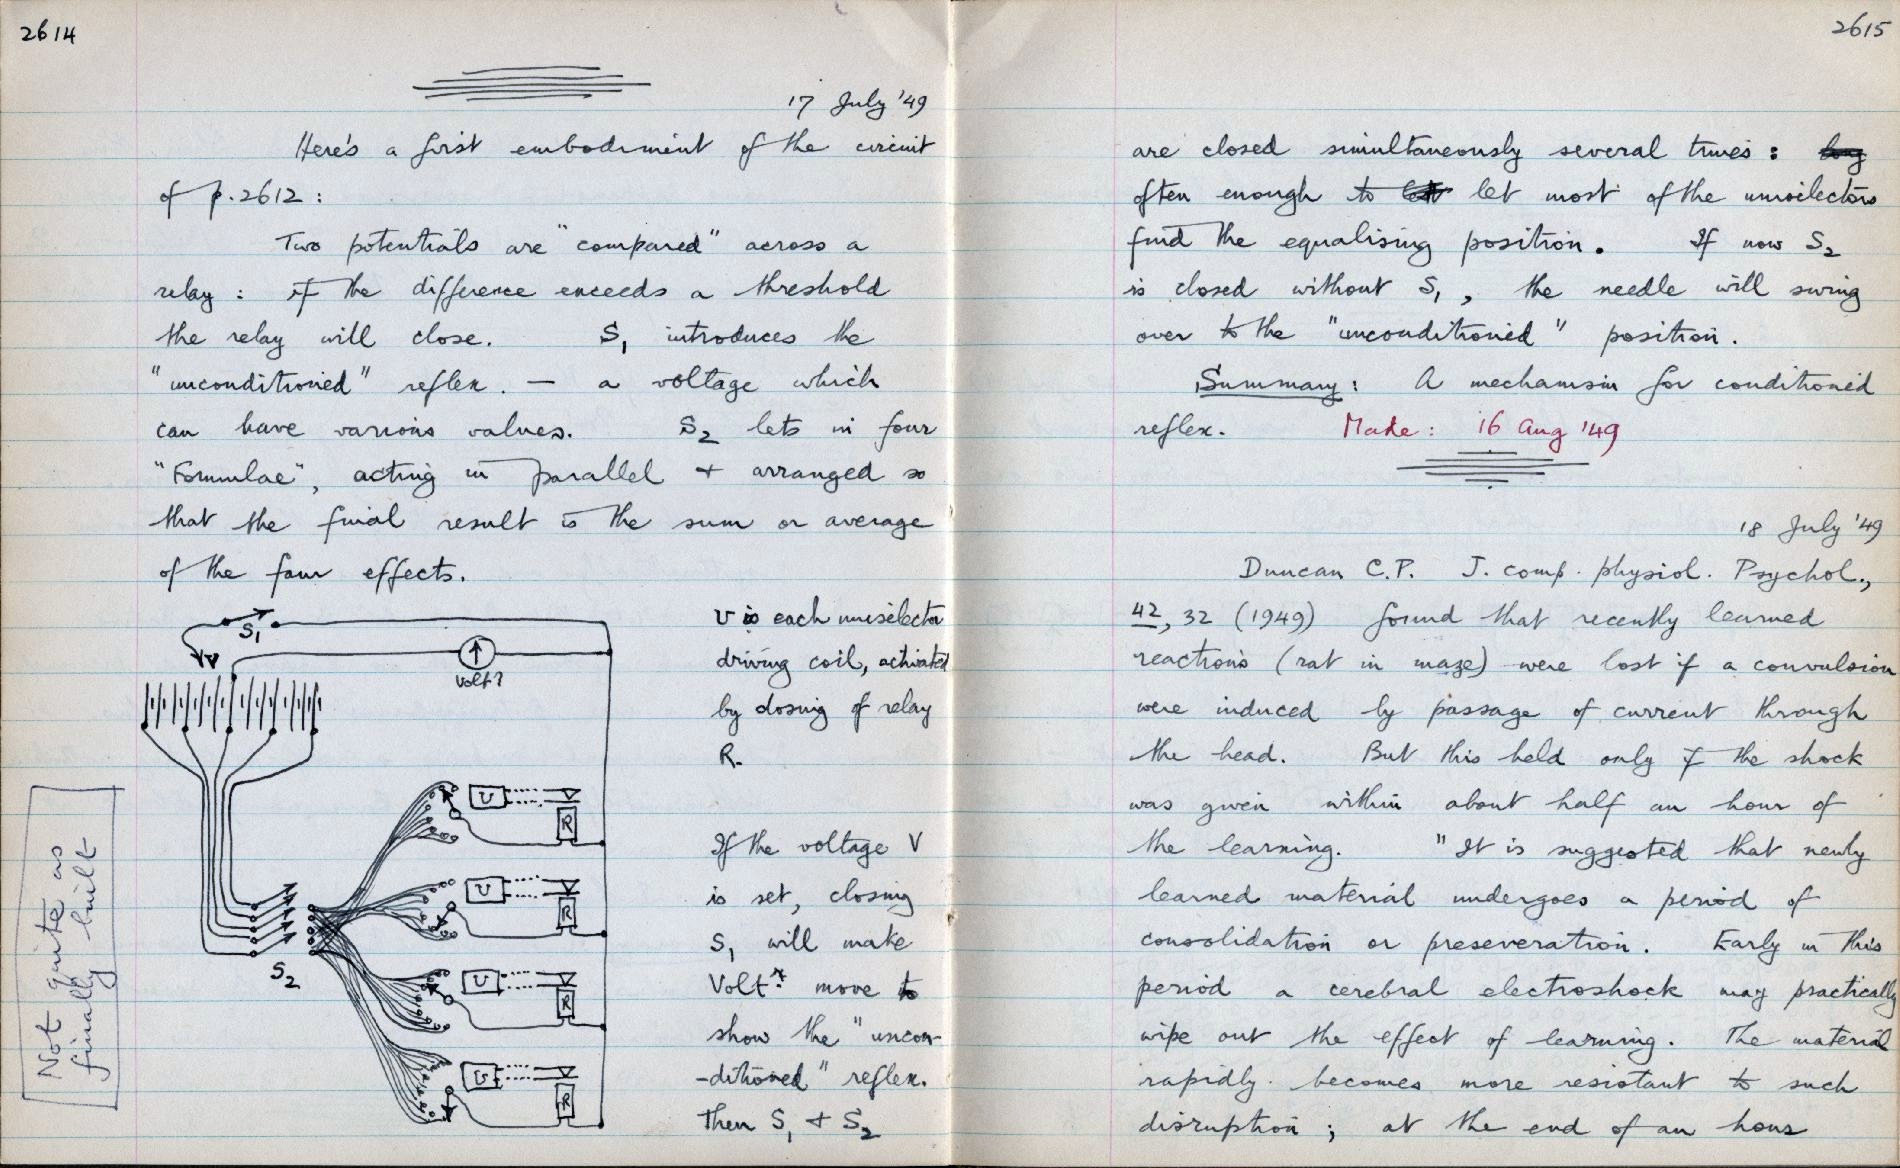 2614
17 July '49
Here's a first embodiment of the circuit
of p. 2612 :
Two potentials are "compared" across a
relay : if the difference exceeds a threshold
the relay will close. S1 introduces the
"unconditioned" reflex. — a voltage which
can have various values. S2 lets in four
"Formulae", acting in parallel + arranged so
that the final result is the sum or average
of the four effects.
S1
V
Volt?
U
R
U
R
U
R
U
R
S2
U is each uniselector
driving coil, activated
by closing of relay
R.
If the voltage V
is set, closing
S1 will make
Volt.r move to
show the "uncon-
-ditioned" reflex.
Then S1 + S2
Not quite as
finally built
2615
are closed simultaneously several times : long
often enough to let let most of the uniselectors
find the equalising position. If now S2
is closed without S1, the needle will swing
over to the "unconditioned" position.
Summary : A mechanism for conditioned
reflex. Made : 16 Aug '49
18 July '49
Duncan C.P. J. comp. physiol. Psychol.,
42, 32 (1949) found that recently learned
reactions (rat in maze) were lost if a convulsion
were induced by passage of current through
the head. But this held only if the shock
was given within about half an hour of
the learning. "It is suggested that newly
learned material undergoes a period of
consolidation or preseveration. Early in this
period a cerebral electroshock may practically
wipe out the effect of learning. The material
rapidly becomes more resistant to such
disruption ; at the end of an hour